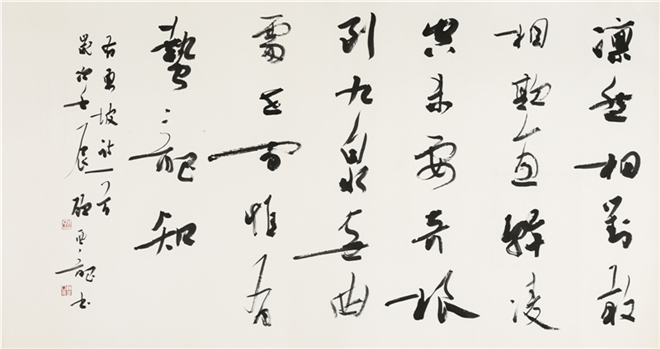 凛然相對敢
相欺直幹凌
空未要奇根
到九泉無曲
處世間惟有
蟄龍知
右東坡詩一首
壬辰顧亞龍書